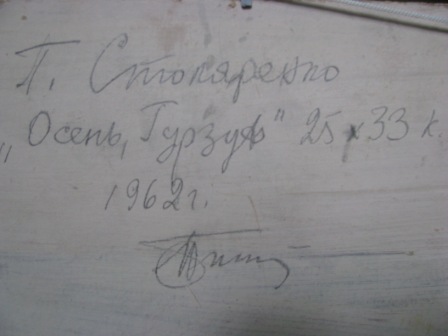 П. Столяренко
„Осень, Гурзуф" 25 х 33 к
1962 г.